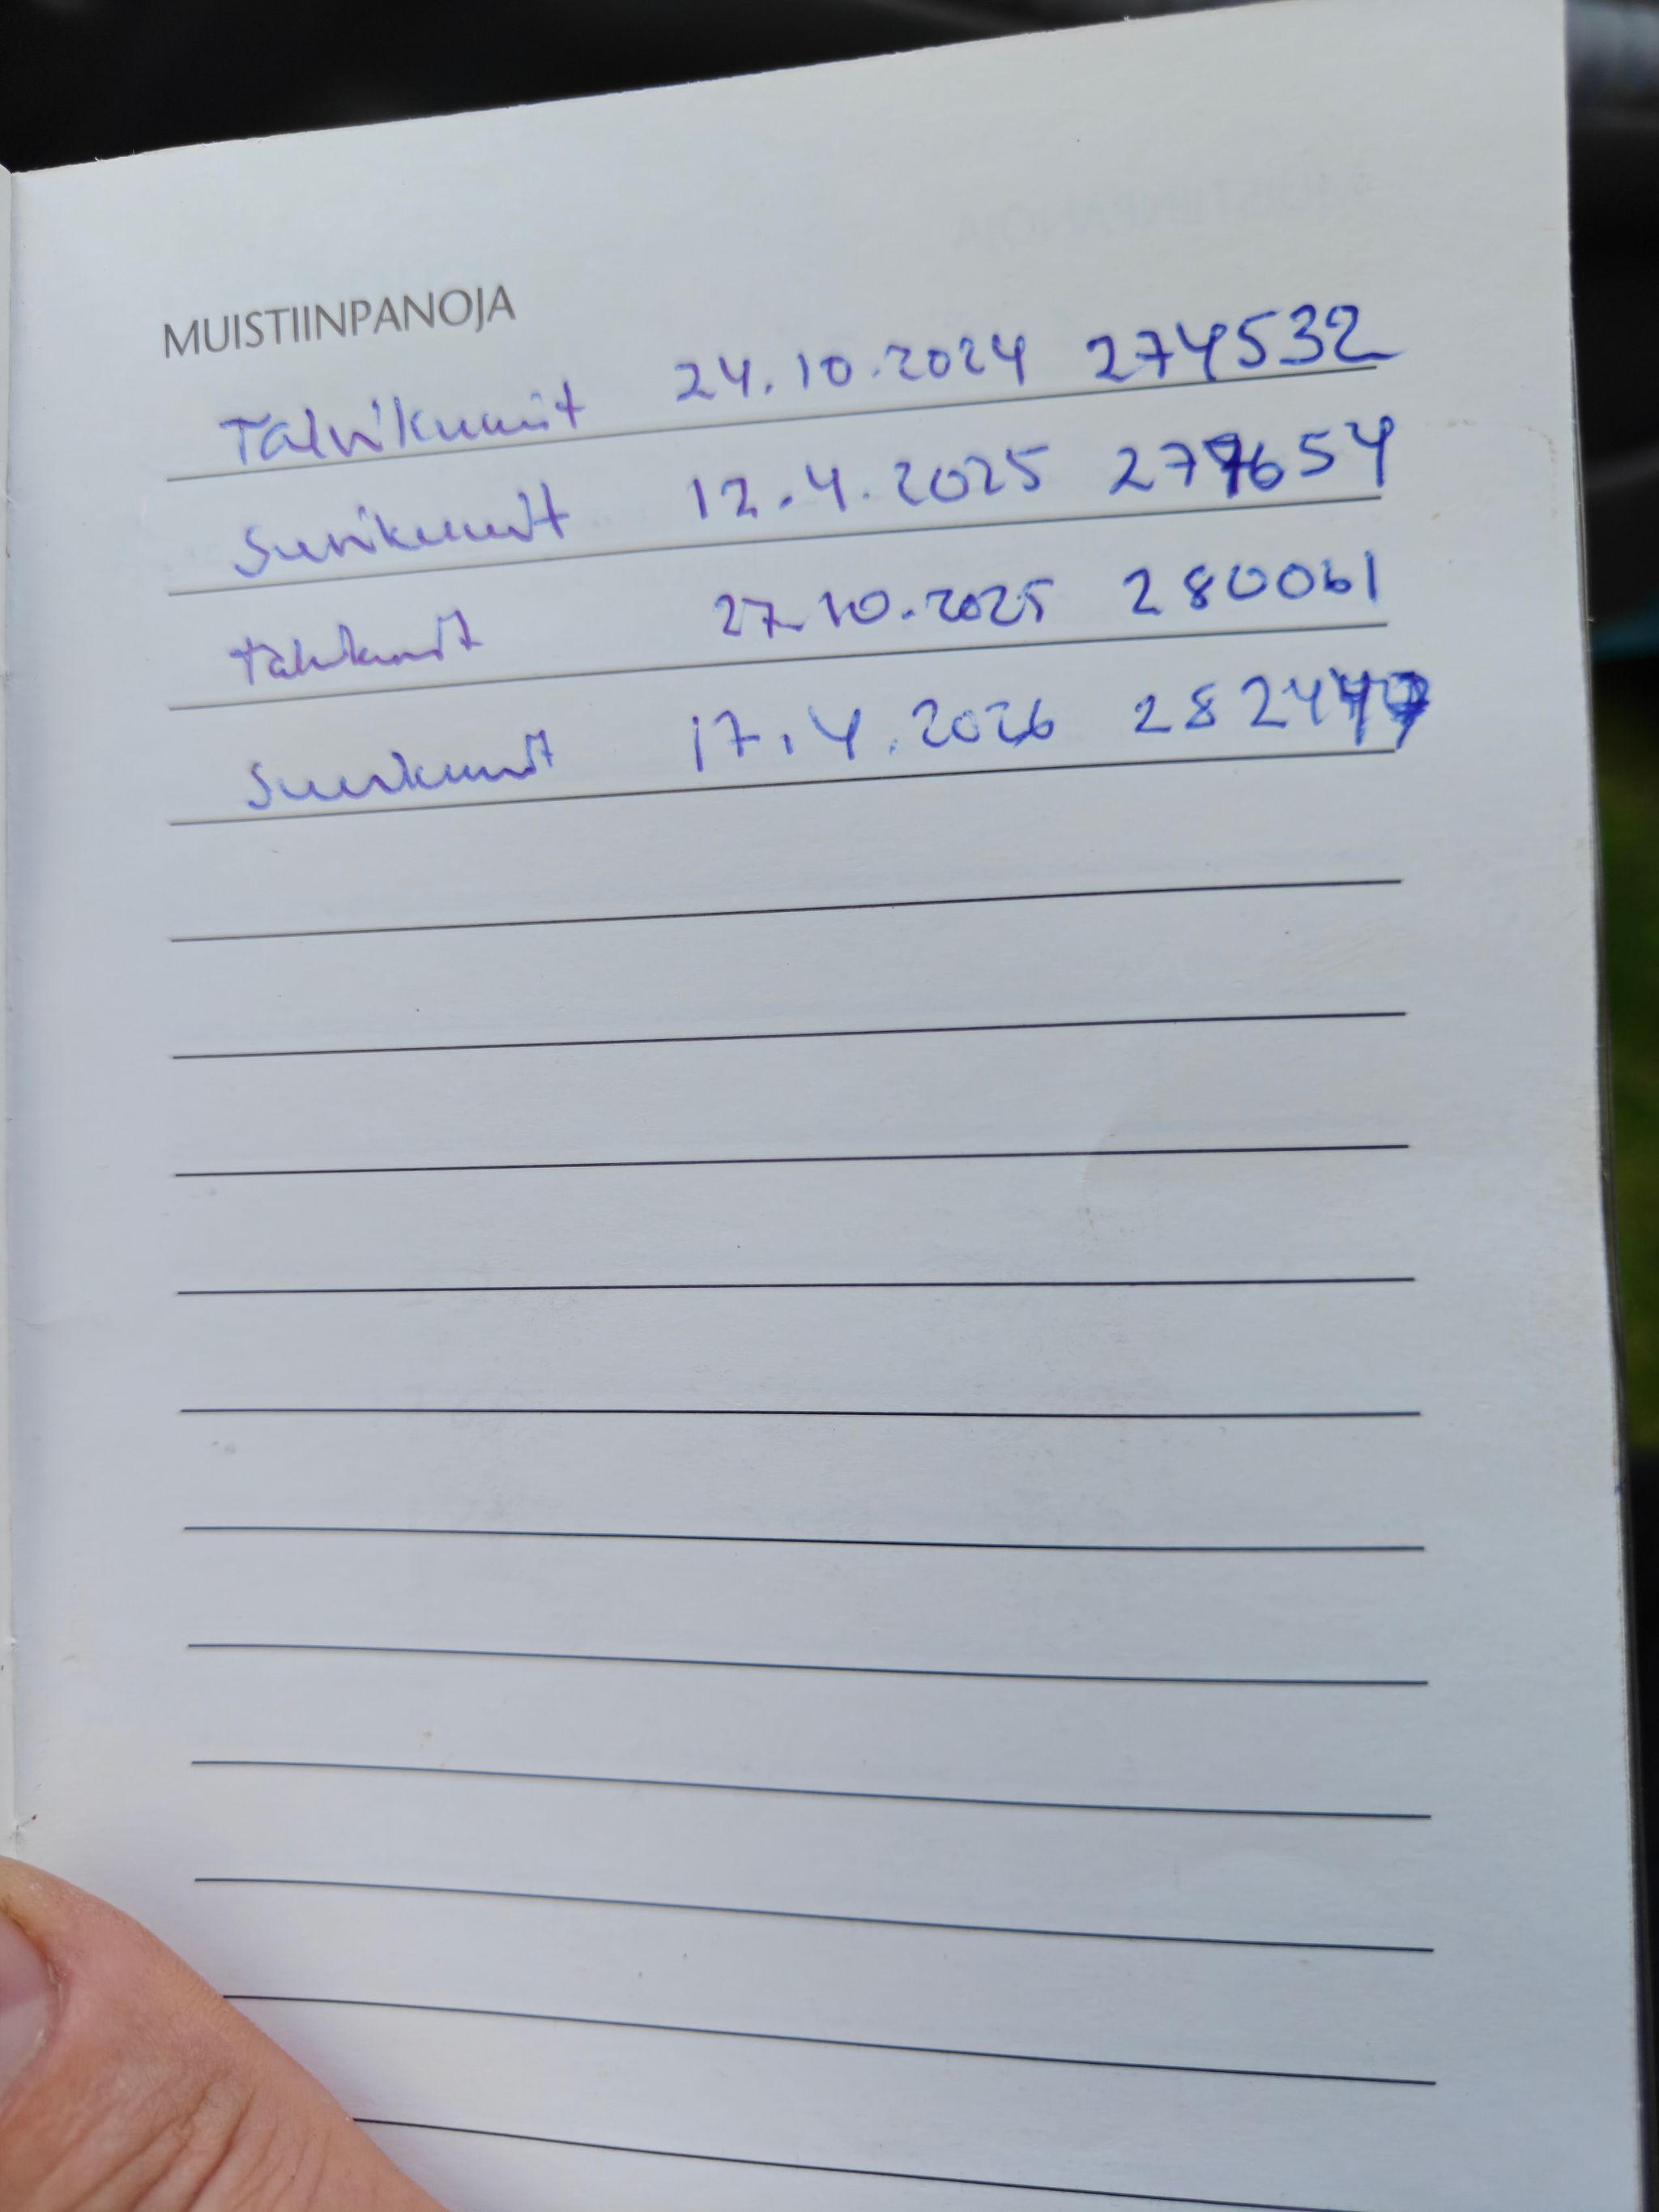 MUISTIINPANOJA
Talvikumit 24.10.2024 274532
Suvikumit 12.4.2025
Talvikumit 27.10.2025 280061
Suvikumit 17.4.2026